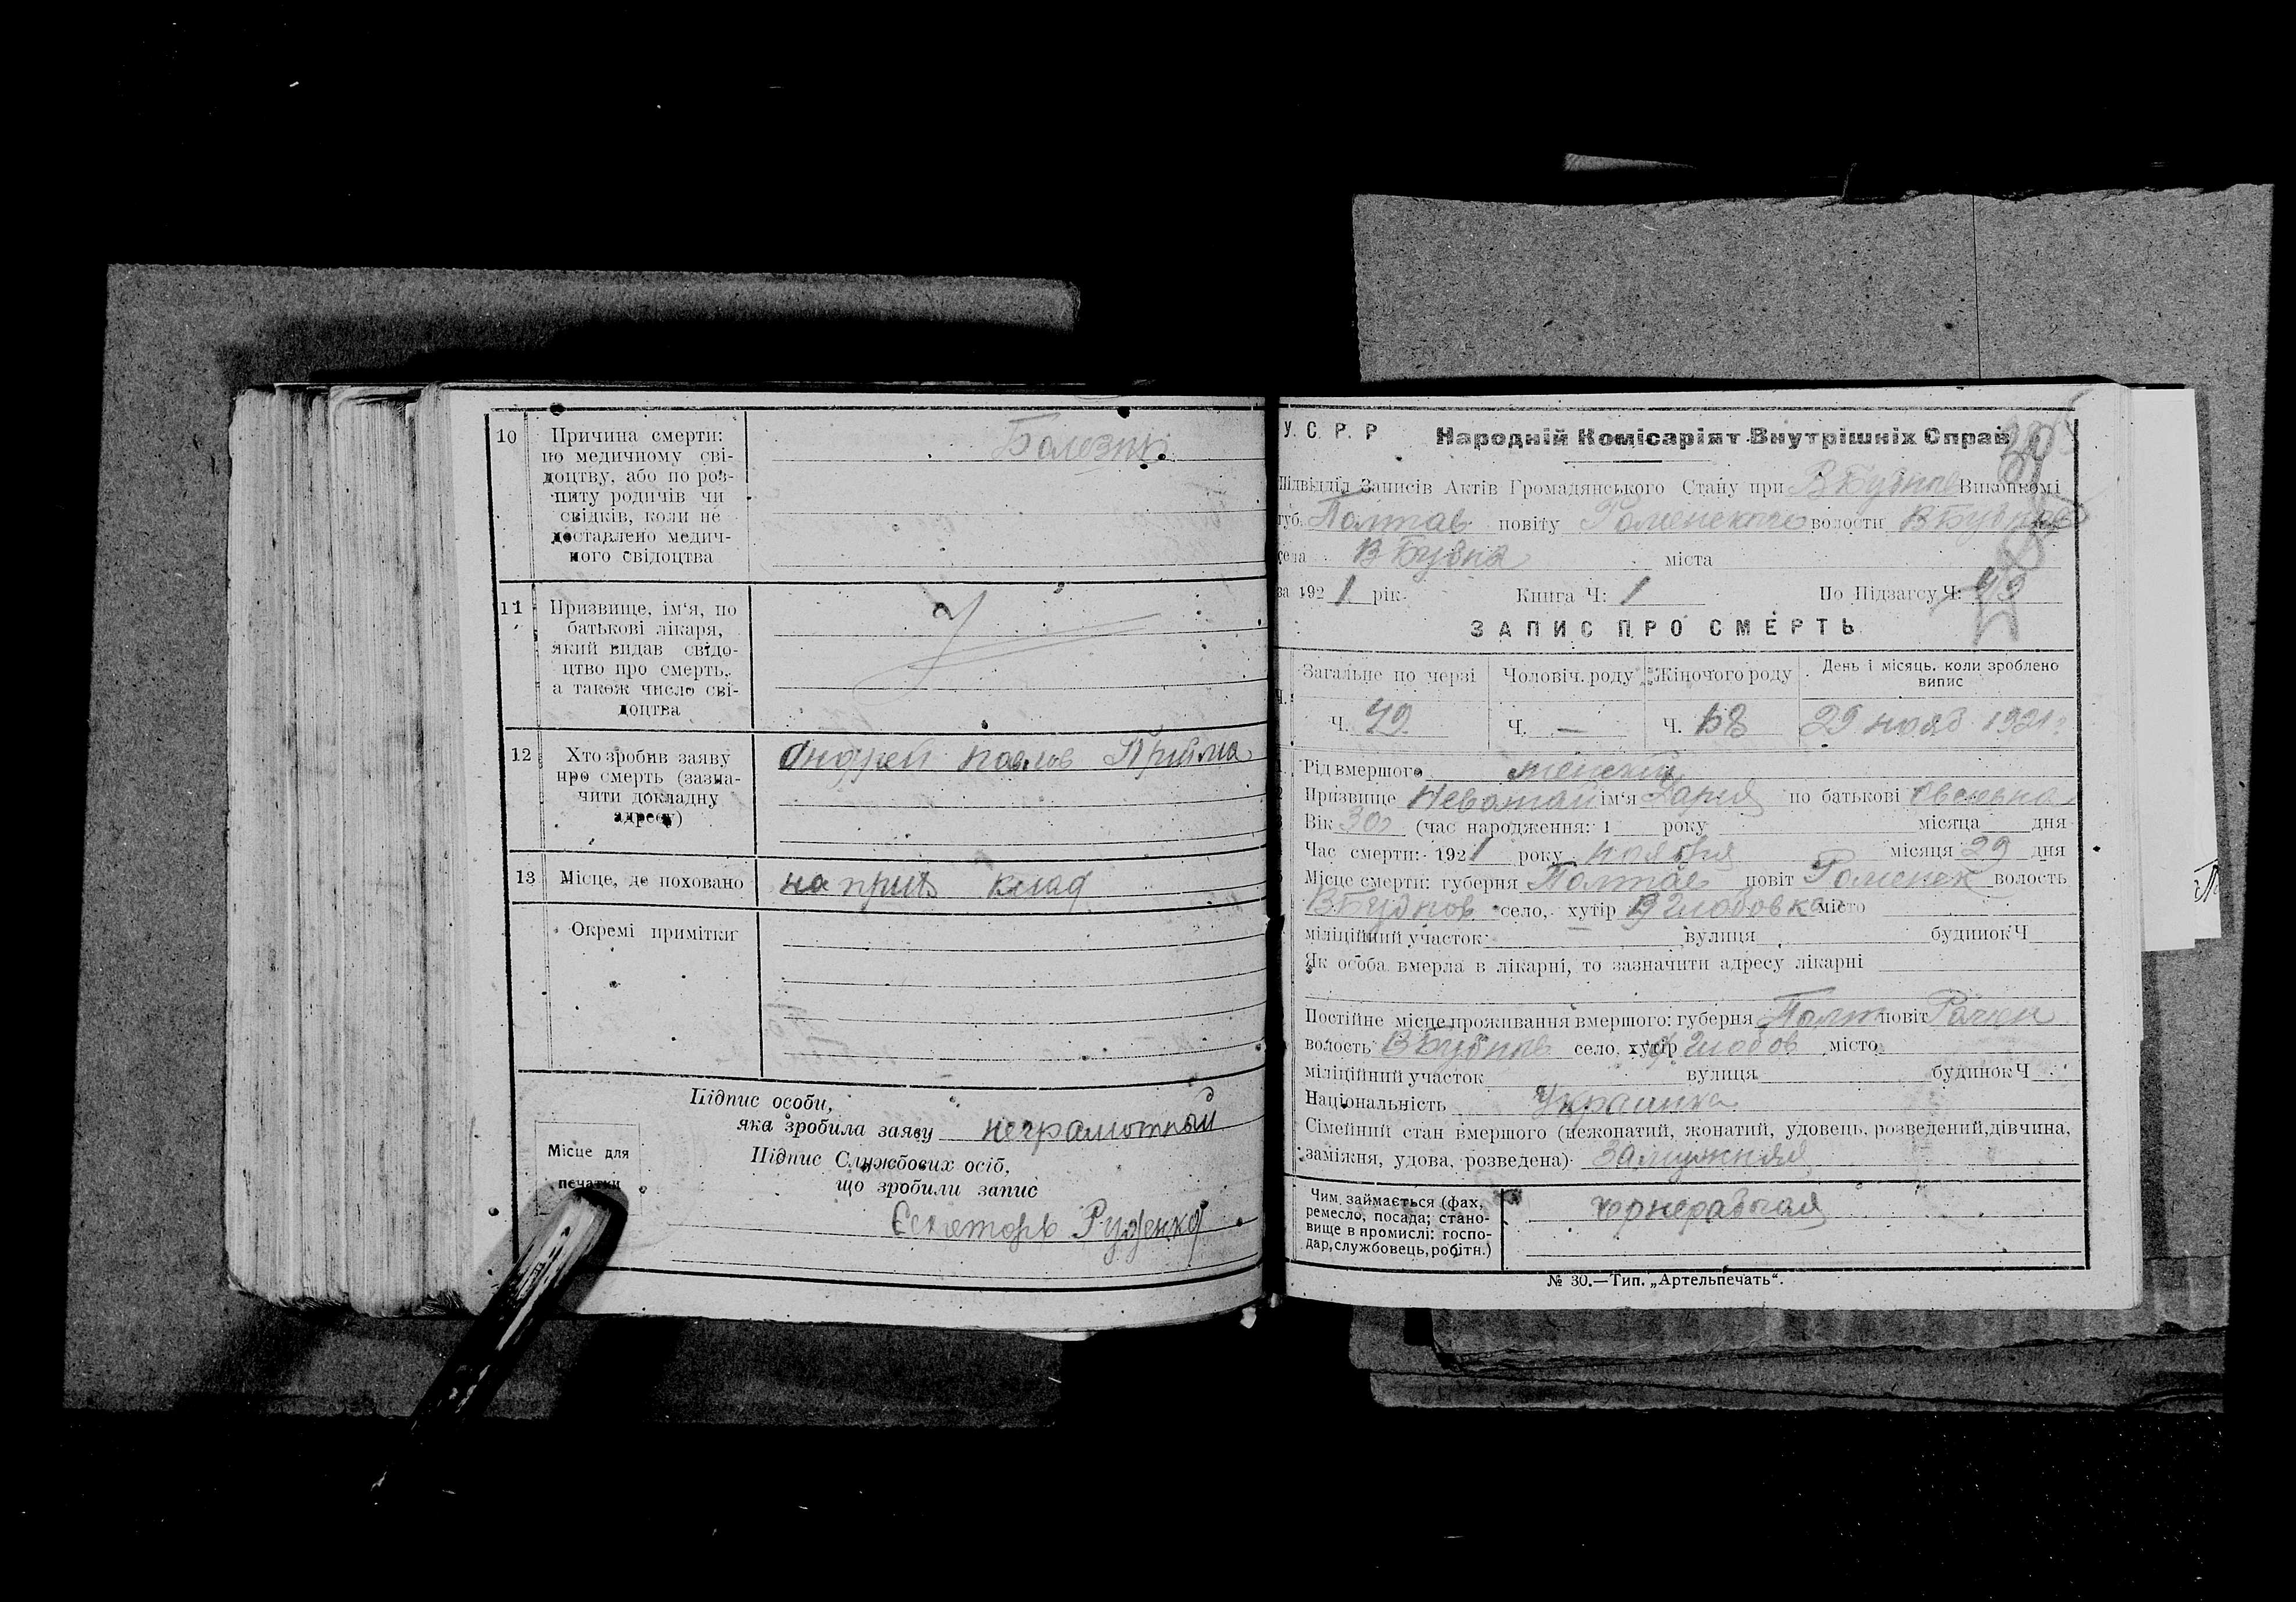 10
Причина смерти:
по медичному сві-
доцтву, або по роз-
питу родичів чи
свідків, коли не
доставлено медич-
ного свідоцтва
Болезнь
11
Призвище, ім‘я, по
батькові лікаря,
який видав свідо-
цтво про смерть,
а також число сві-
доцтва
12
Хто зробив заяву
про смерть (зазна-
чити докладну
адресу)
Андрей Павлов Прийма
13
Місце, де поховано
на прих клад
Окремі примітки
Підпис особи,
яка зробила заяву неграмотный
Місце для
печатки
Підпис Службових осіб,
що зробили запис
Секаторь Руденко
У. С. Р. Р
Народній Комісаріят Внутрішніх Справ
Підвідділ Записів Актів Громадянського Стану при В Бубнов Виконкомі
губ. Полтав повіту Роменского волости В Бубнов
села В Бубна міста
за 1921 рік Книга Ч: 1 По Підзагсу Ч:
ЗАПИС ПРО СМЕРТЬ
Загальне по черзі Чоловіч. роду Жіночого роду День і місяць, коли зроблено
випис
Ч. Ч. — Ч. 29 нояб 1921г
Рід вмершого женский
Призвище ім‘я Дария по батькові
Вік 30 (час народження: 1 року місяца дня
Час смерти: 1921 року ноября місяця 29 дня
Місце смерти: губерня Полтав повіт Роменск волость
В Бубнов село, хутір місто
міліційний участок вулиця будинок Ч
Як особа вмерла в лікарні, то зазначити адресу лікарні
Постійне місце проживання вмершого: губерня Полт повіт Ромен
волость В Бубнов село, хутір місто
міліційний участок вулиця будинок Ч
Національність Украинка
Сімейний стан вмершого (нежонатий, жонатий, удовець, розведений, дівчина,
заміжня, удова, розведена) Замужняя
Чим займається (фах,
ремесло, посада; стано-
вище в промислі: госпо-
дар, службовець, робітн.)
чорнерабочая
№ 30.—Тип. „Артельпечать“.